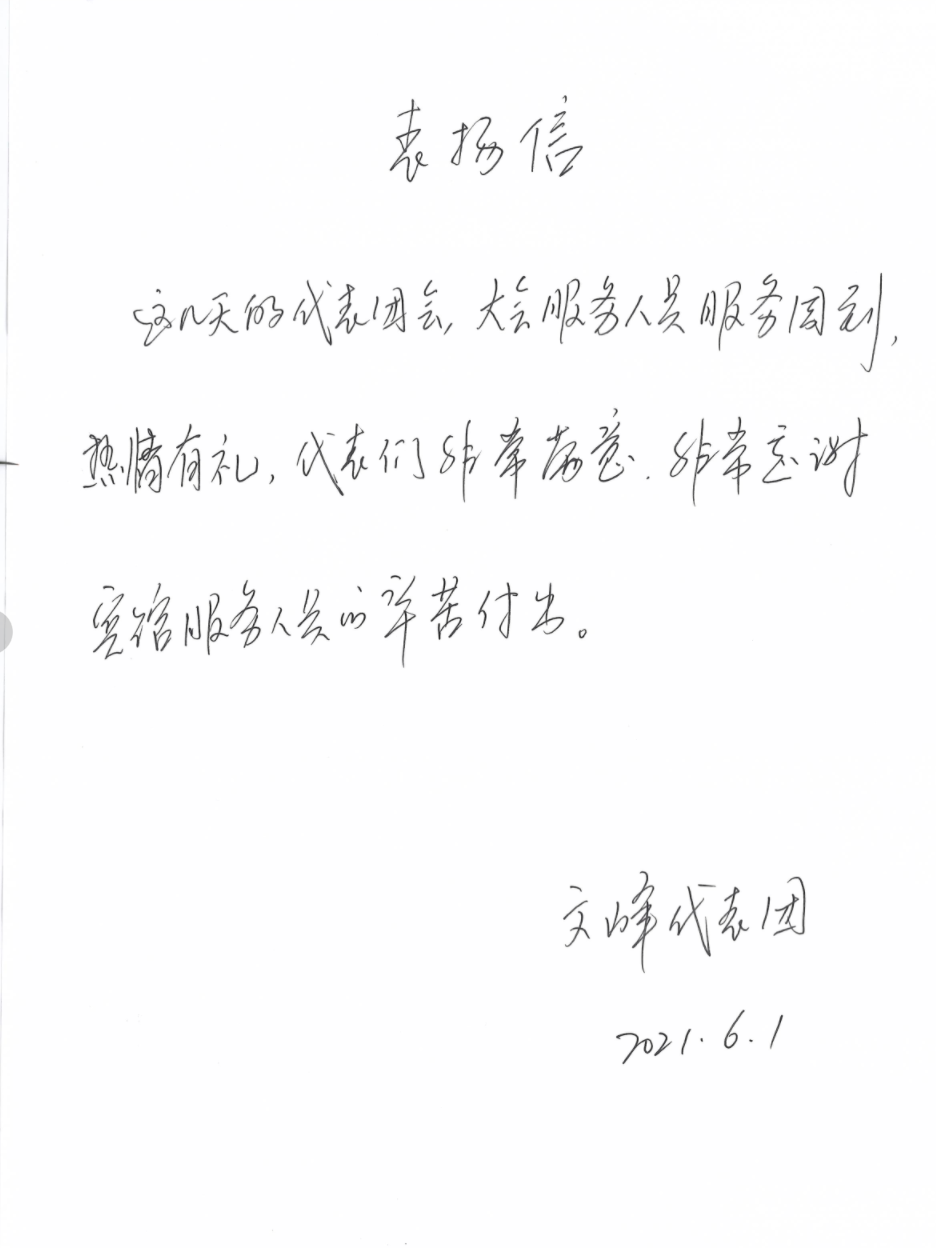 表扬信
这几天的代表团会,大会服务人员服务周到,
热情有礼,代表们非常满意.非常感谢
宾馆服务人员的辛苦付出。
文峰代表团
2021.6.1